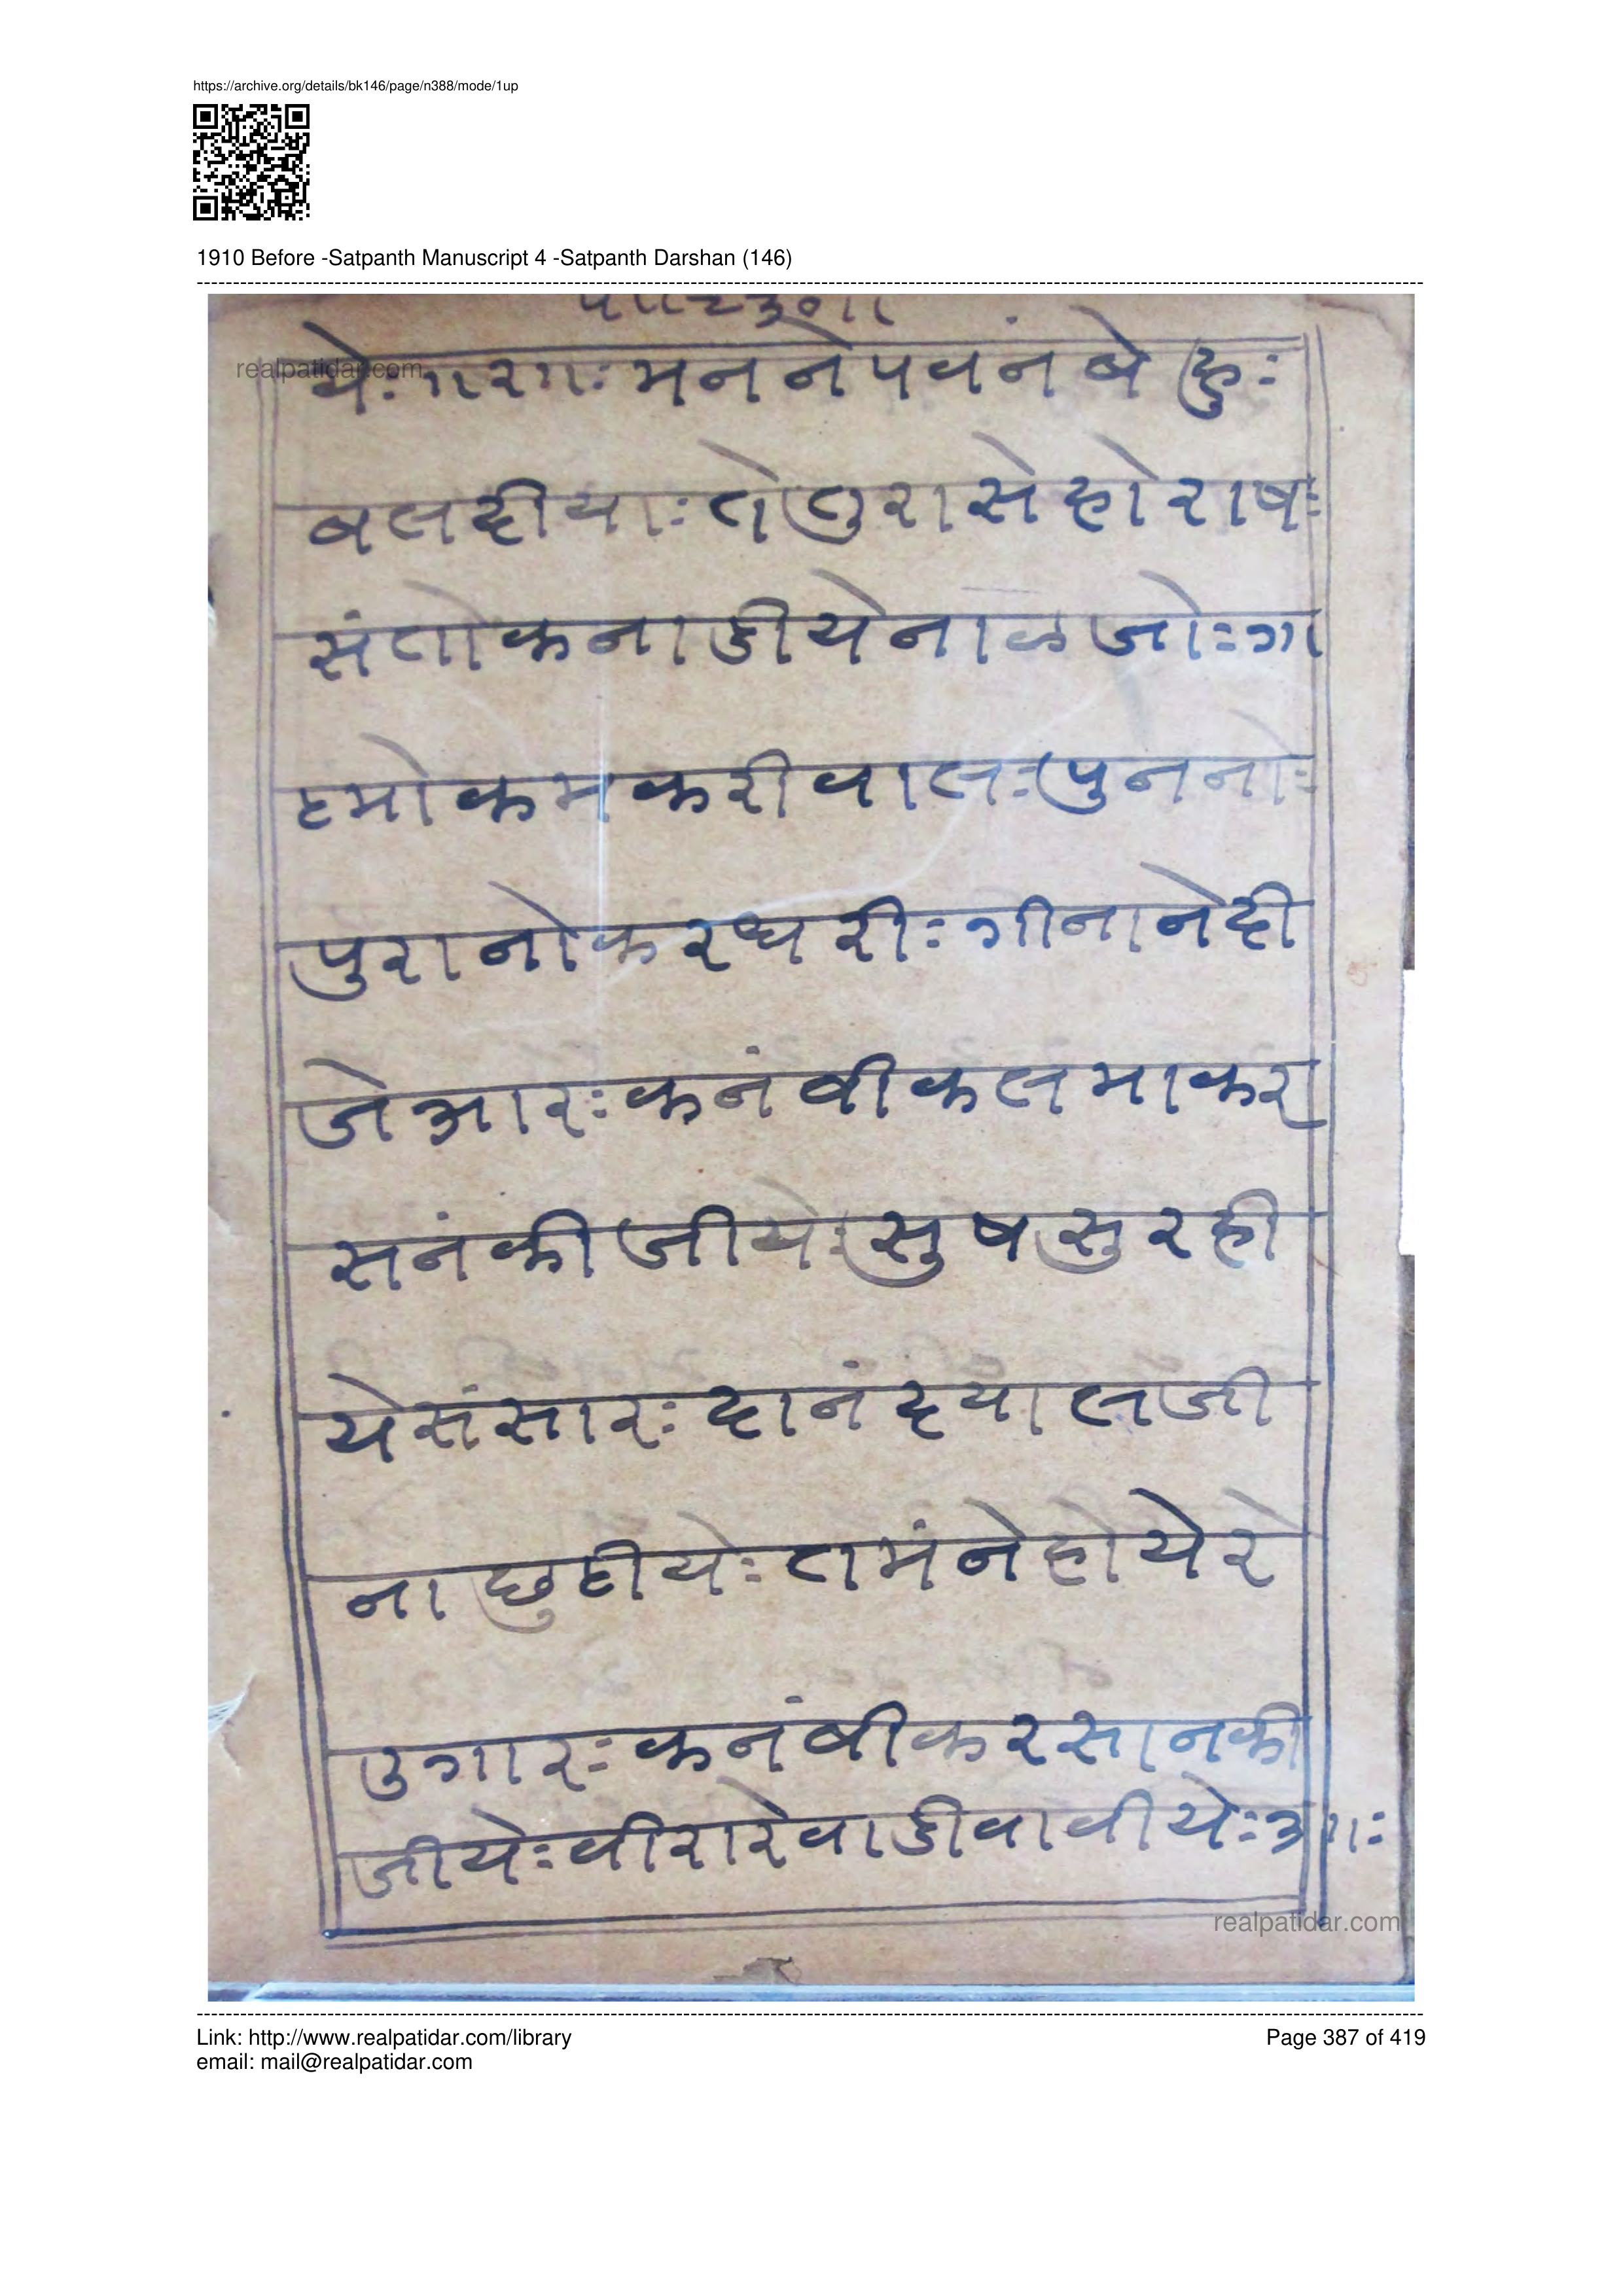 https://archive.org/details/bk146/page/n388/mode/1up
1910 Before -Satpanth Manuscript 4 -Satpanth Darshan (146)
realpatidar.com
येः ॥२॥ः मन ने पवंन बे हुः
बलदीयाः ते तुरा से हो राषः
संतोक नाडीये नाळ जोः ग्ना
हमो कम करी वालः पुन नोः
पुरानो कर धरीः गीना नेदी
जे आरः कनंबी कल मा कर
सनं कीजीयेः सुष सु रही
ये संसारः दानं दयालजी
ना छुटीयेः तमंने होये रे
उगारः कनंबी करसान की
जीयेः वीरा रे वाडी वावीयेः ॥३॥ः
realpatidar.com
Link: http://www.realpatidar.com/library
Page 387 of 419
email: mail@realpatidar.com